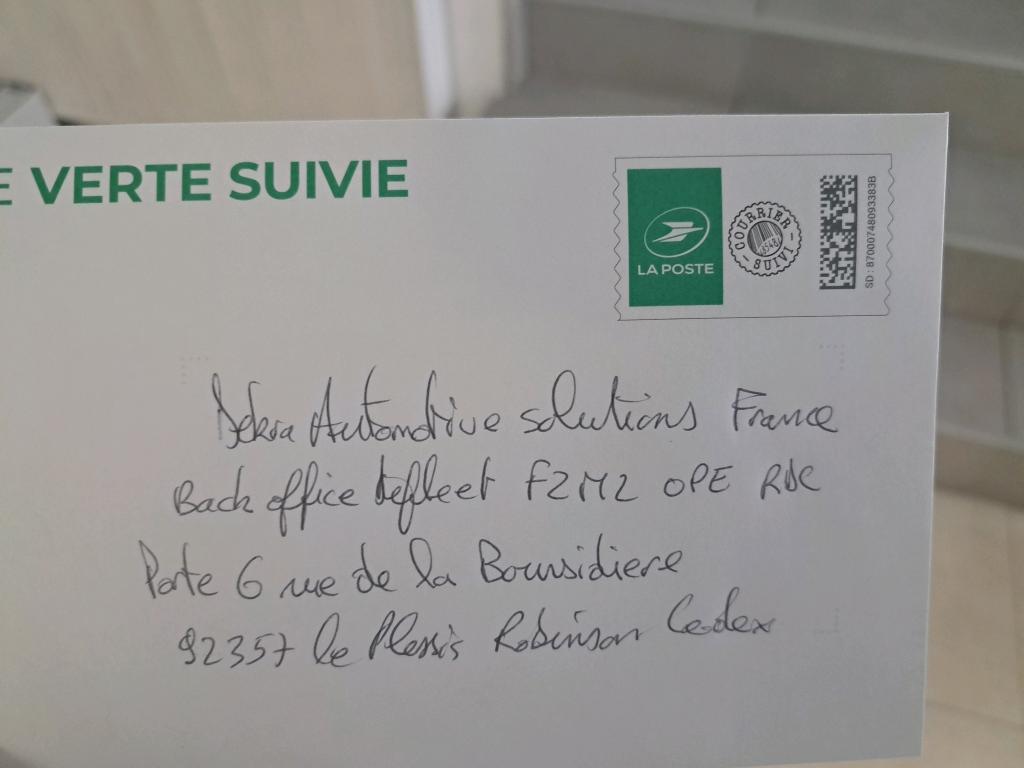 E VERTE SUIVIE
LA POSTE
COURRIER
SUIVI
SD : 87000748093383B
Dekra Automotive solutions France
Back office Defleet F2M2 OPE RDC
Porte 6 rue de la Boursidiere
92357 le Plessis Robinson Cedex